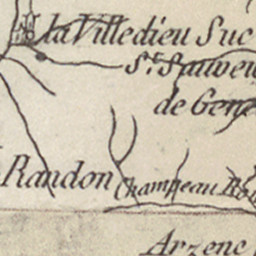 la Villedieu Suc
St. Sauveu
de Gene
Randon
Champeau
Arzenc